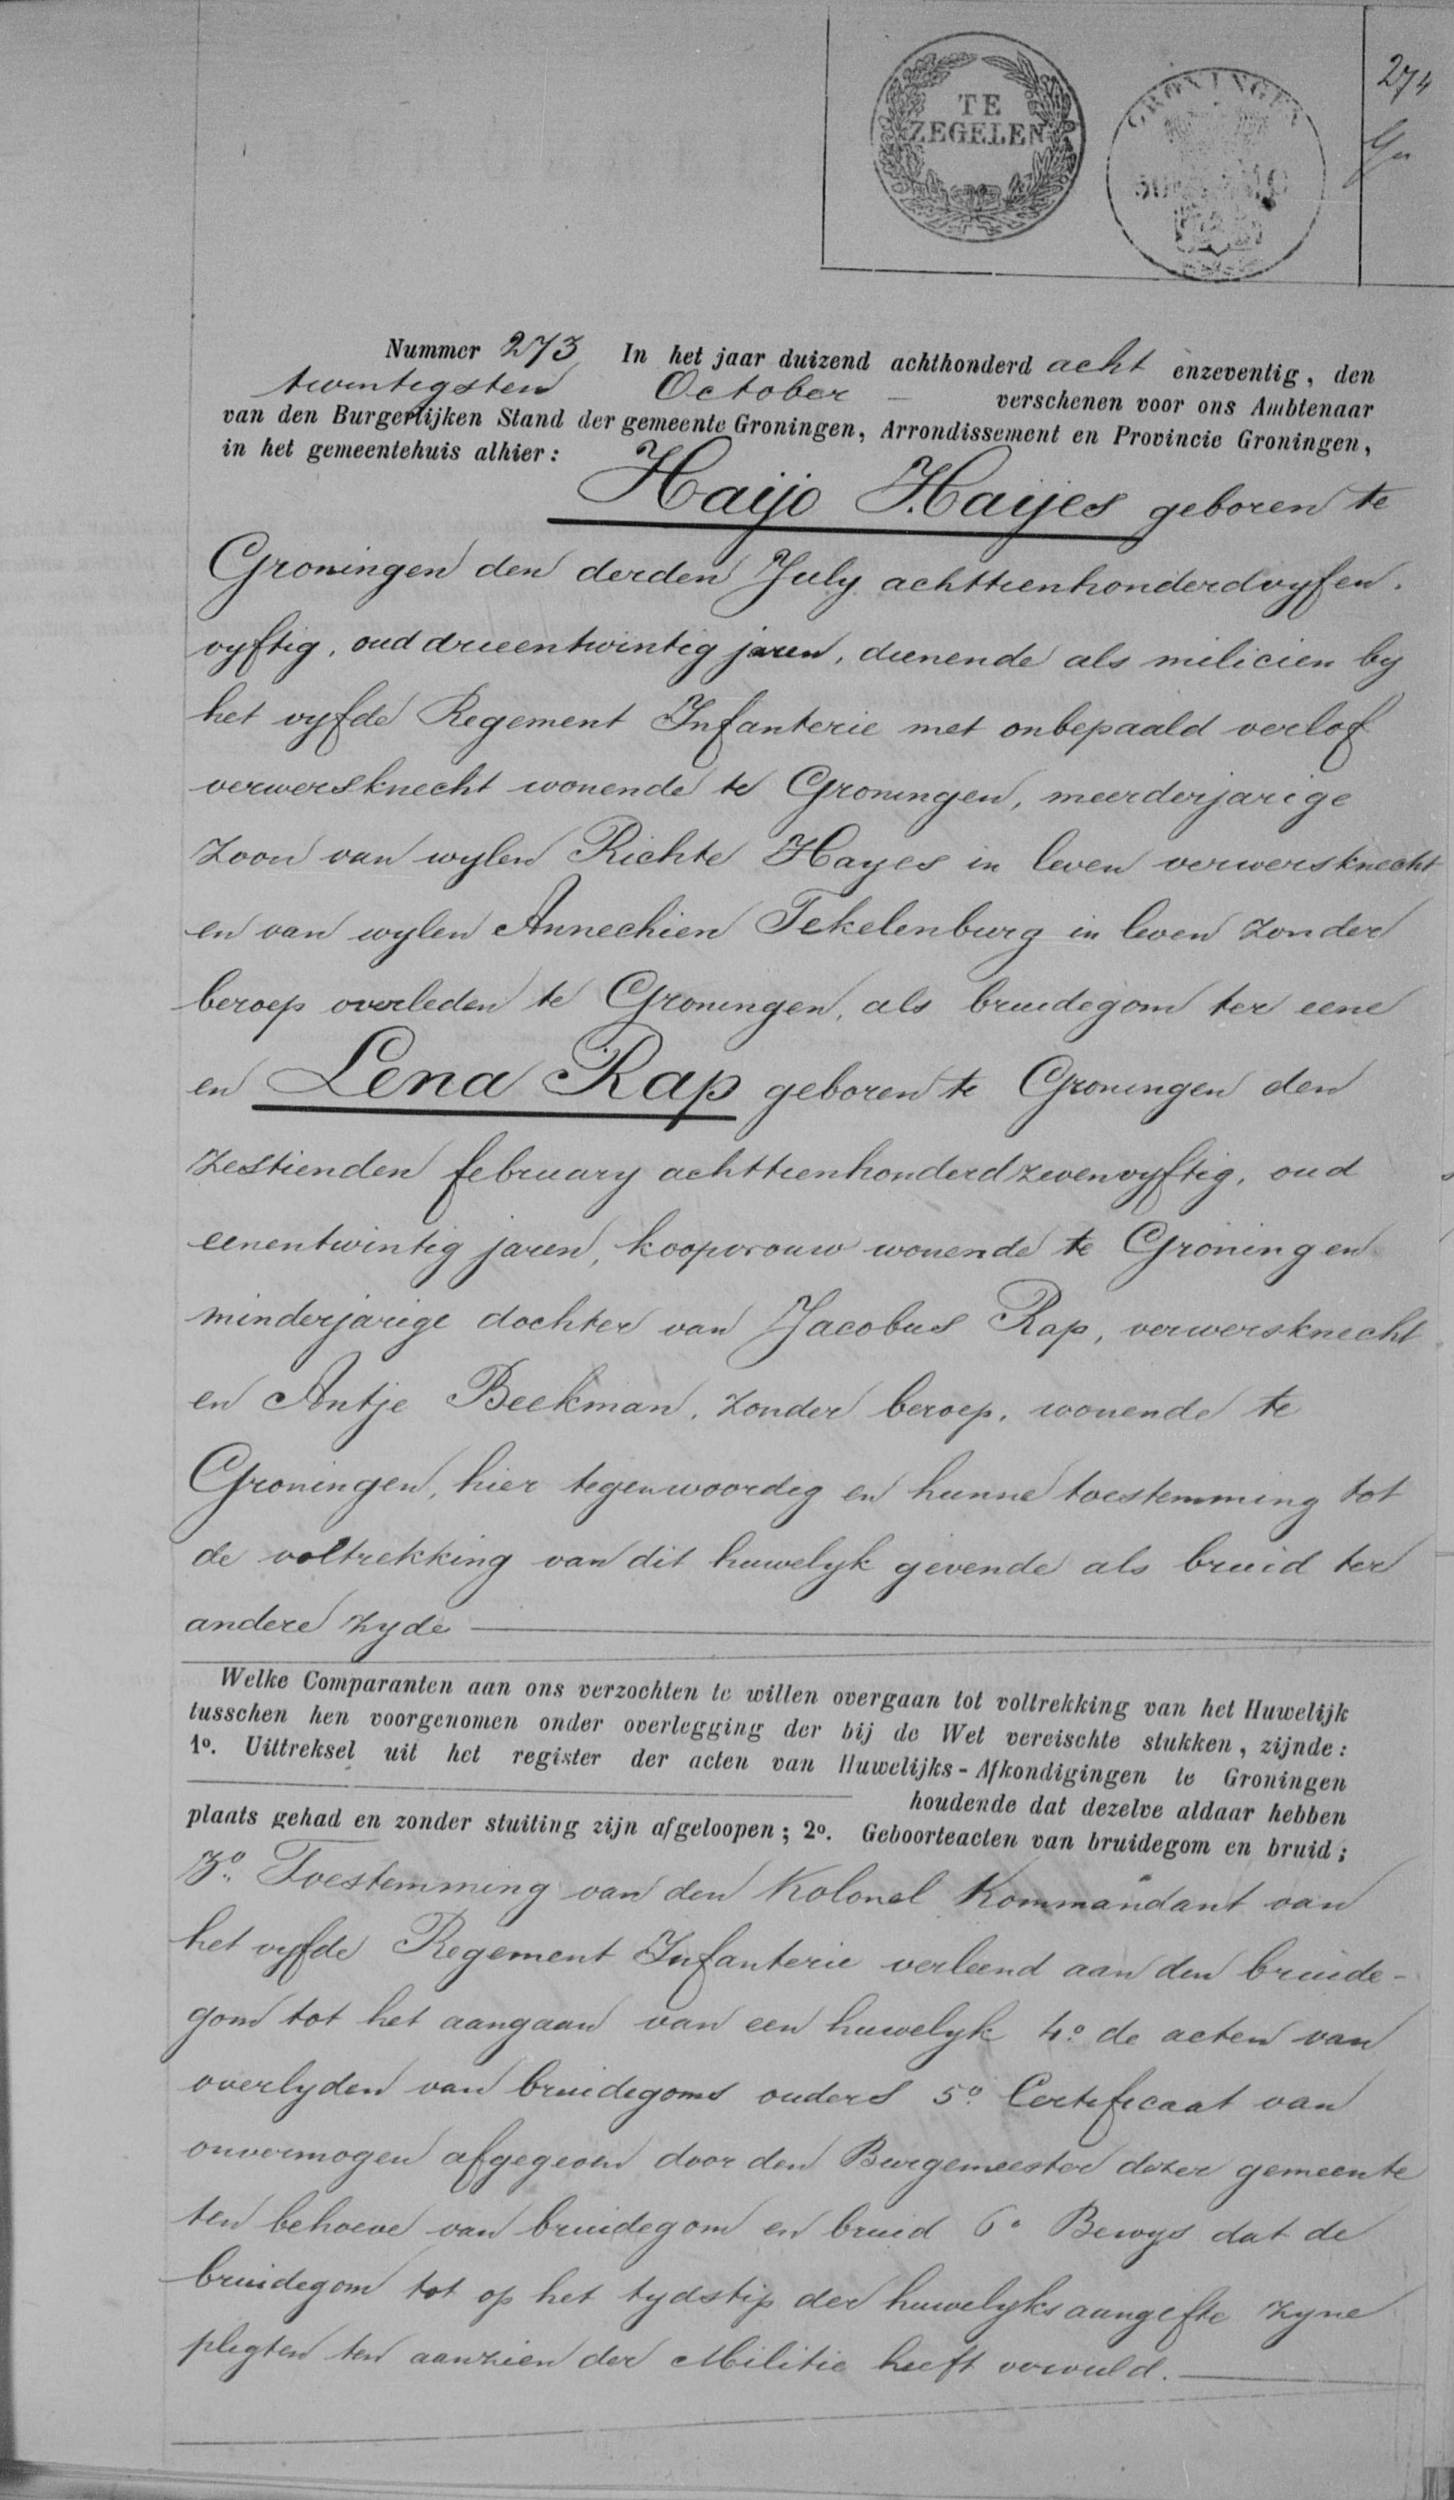 TE
ZEGELEN
GRONINGEN
274
Nummer 273 In het jaar duizend achthonderd acht enzeventig, den
twintigsten October — verschenen voor ons Ambtenaar
van den Burgerlijken Stand der gemeente Groningen, Arrondissement en Provincie Groningen,
in het gemeentehuis alhier:
Haijo Haijes geboren te
Groningen den derden July achttienhonderdvyfen
vyftig, oud drieentwintig jaren, dienende als milicien by
het vyfde Regement Infanterie met onbepaald verlof
verwersknecht wonende te Groningen, meerderjarige
zoon van wylen Richte Hayes in leven verwersknecht
en van wylen Annechien Tekelenburg in leven zonder
beroep overleden te Groningen, als bruidegom ter eene
en Lena Rap geboren te Groningen den
zestienden february achttienhonderdzevenvyftig, oud
eenentwintig jaren, koopvrouw wonende te Groningen
minderjarige dochter van Jacobus Rap, verwersknecht
en Antje Beekman, zonder beroep, wonende te
Groningen, hier tegenwoordig en hunne toestemming tot
de voltrekking van dit huwelyk gevende als bruid ter
andere zyde
Welke Comparanten aan ons verzochten te willen overgaan tot voltrekking van het Huwelijk
tusschen hen voorgenomen onder overlegging der bij de Wet vereischte stukken, zijnde:
1o. Uittreksel uit het register der acten van Huwelijks-Afkondigingen te Groningen
houdende dat dezelve aldaar hebben
plaats gehad en zonder stuiting zijn afgeloopen; 2o. Geboorteacten van bruidegom en bruid;
3o. Toestemming van den Kolonel Kommandant van
het vyfde Regement Infanterie verleend aan den bruide-
gom tot het aangaan van een huwelyk 4o de acten van
overlyden van bruidegoms ouders 5o. Certificaat van
onvermogen afgegeven door den Burgemeester dezer gemeente
ten behoeve van bruidegom en bruid 6o Bewys dat de
bruidegom tot op het tydstip der huwelyksaangifte zyne
pligten ten aanzien der Militie heeft vervuld.